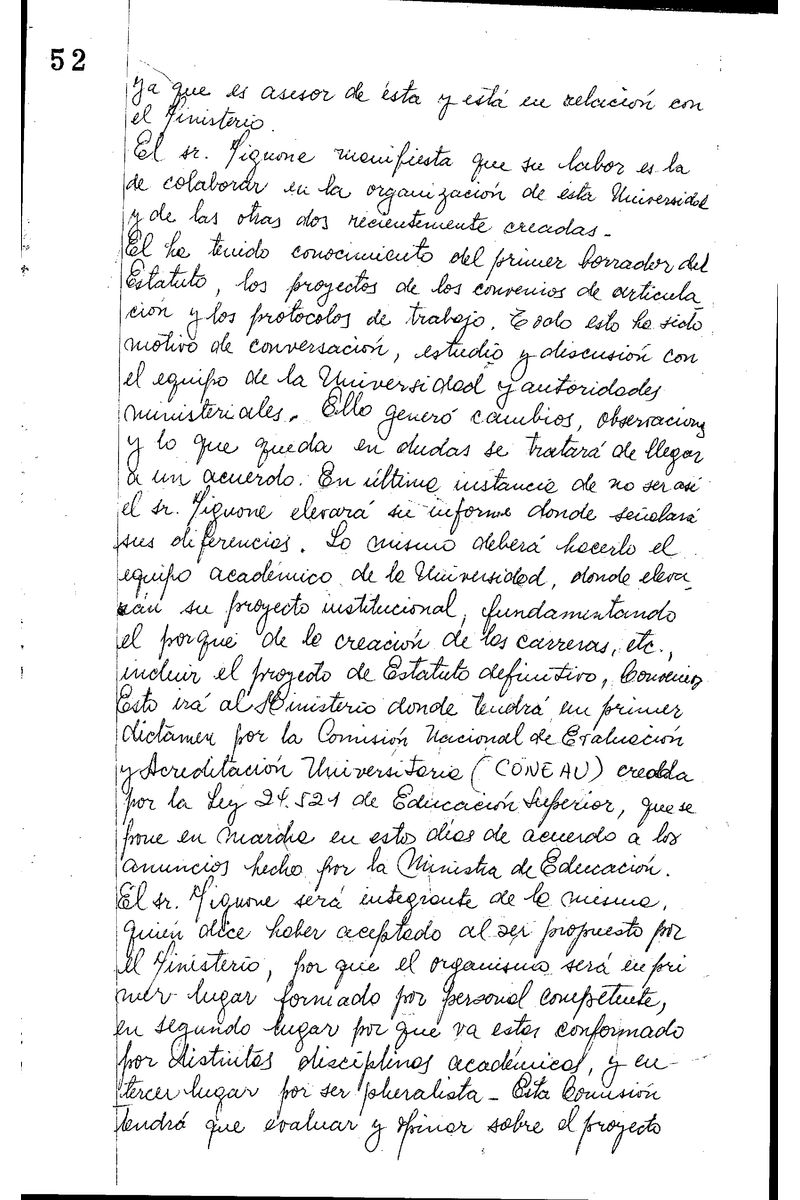 52
ya que es asesor de ésta y está en relación con
el Ministerio.
El sr. Mignone manifiesta que su labor es la
de colaborar en la organización de esta Universidad
y de las otras dos recientemente creadas -
El ha tenido conocimiento del primer borrador del
Estatuto, los proyectos de los convenios de articula
ción y los protocolos de trabajo. Todo esto ha sido
motivo de conversación, estudio y discusión con
el equipo de la Universidad y autoridades
ministeriales. Ello generó cambios, observaciones
y lo que queda en dudas se tratará de llegar
a un acuerdo. En última instancia de no ser así
el sr. Mignone elevará su informe donde señalará
sus diferencias. Lo mismo deberá hacerlo el
equipo académico de la Universidad, donde eleva_
rán su proyecto institucional, fundamentando
el porqué de la creación de las carreras, etc.,
incluir el proyecto de Estatuto definitivo, Convenios
Esto irá al Ministerio donde tendrá un primer
dictamen por la Comisión Nacional de Evaluación
y Acreditación Universitaria (CONEAU) creada
por la Ley 24.521 de Educación Superior, que se
pone en marcha en estos días de acuerdo a los
anuncios hecho por la Ministra de Educación.
El sr. Mignone será integrante de la misma,
quien dice haber aceptado al ser propuesto por
el Ministerio, por que el organismo será en pri
mer lugar formado por personal competente,
en segundo lugar por que va estar conformado
por distintas disciplinas académicas, y en
tercer lugar por ser pluralista - Esta Comisión
tendrá que evaluar y opinar sobre el proyecto